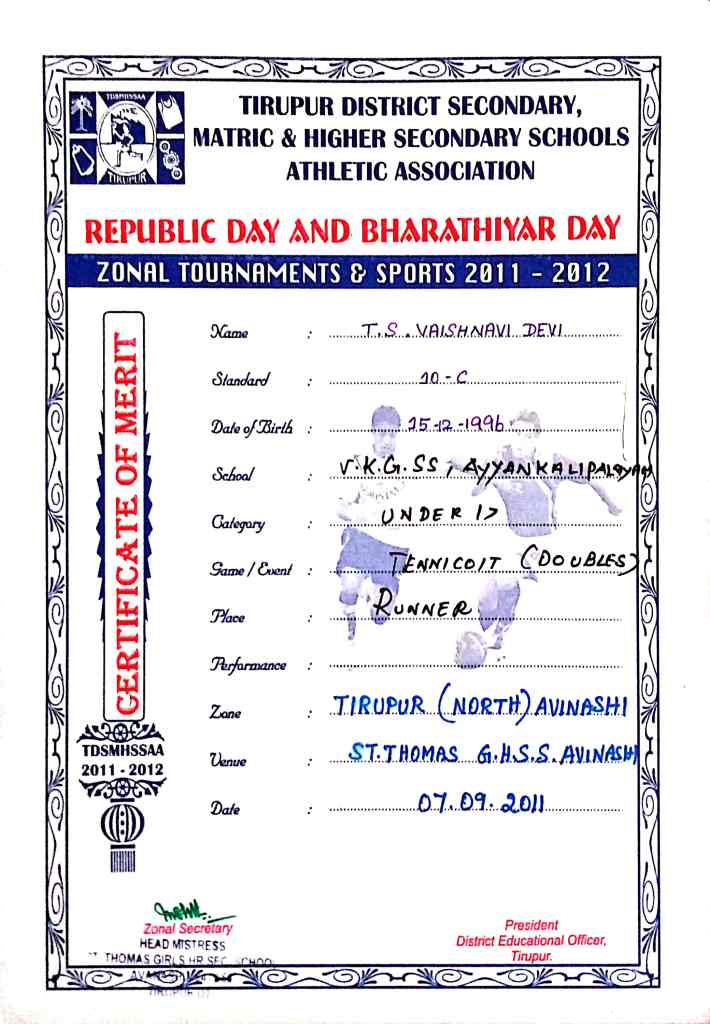 TDSMHSSAA
TIRUPUR
TIRUPUR DISTRICT SECONDARY,
MATRIC & HIGHER SECONDARY SCHOOLS
ATHLETIC ASSOCIATION
REPUBLIC DAY AND BHARATHIYAR DAY
ZONAL TOURNAMENTS & SPORTS 2011 - 2012
CERTIFICATE OF MERIT
TDSMHSSAA
2011 - 2012
Name : T.S. VAISHNAVI DEVI
Standard : 10 - C
Date of Birth : 15-12-1996
School : V.K.G.SS, AYYANKALIPALAYAM
Category : UNDER 17
Game / Event : TENNICOIT (DOUBLES)
Place : RUNNER
Performance :
Zone : TIRUPUR (NORTH) AVINASHI
Venue : ST.THOMAS G.H.S.S. AVINASHI
Date : 07.09.2011
Zonal Secretary
HEAD MISTRESS
THOMAS GIRLS HR SEC SCHOOL
President
District Educational Officer,
Tirupur.